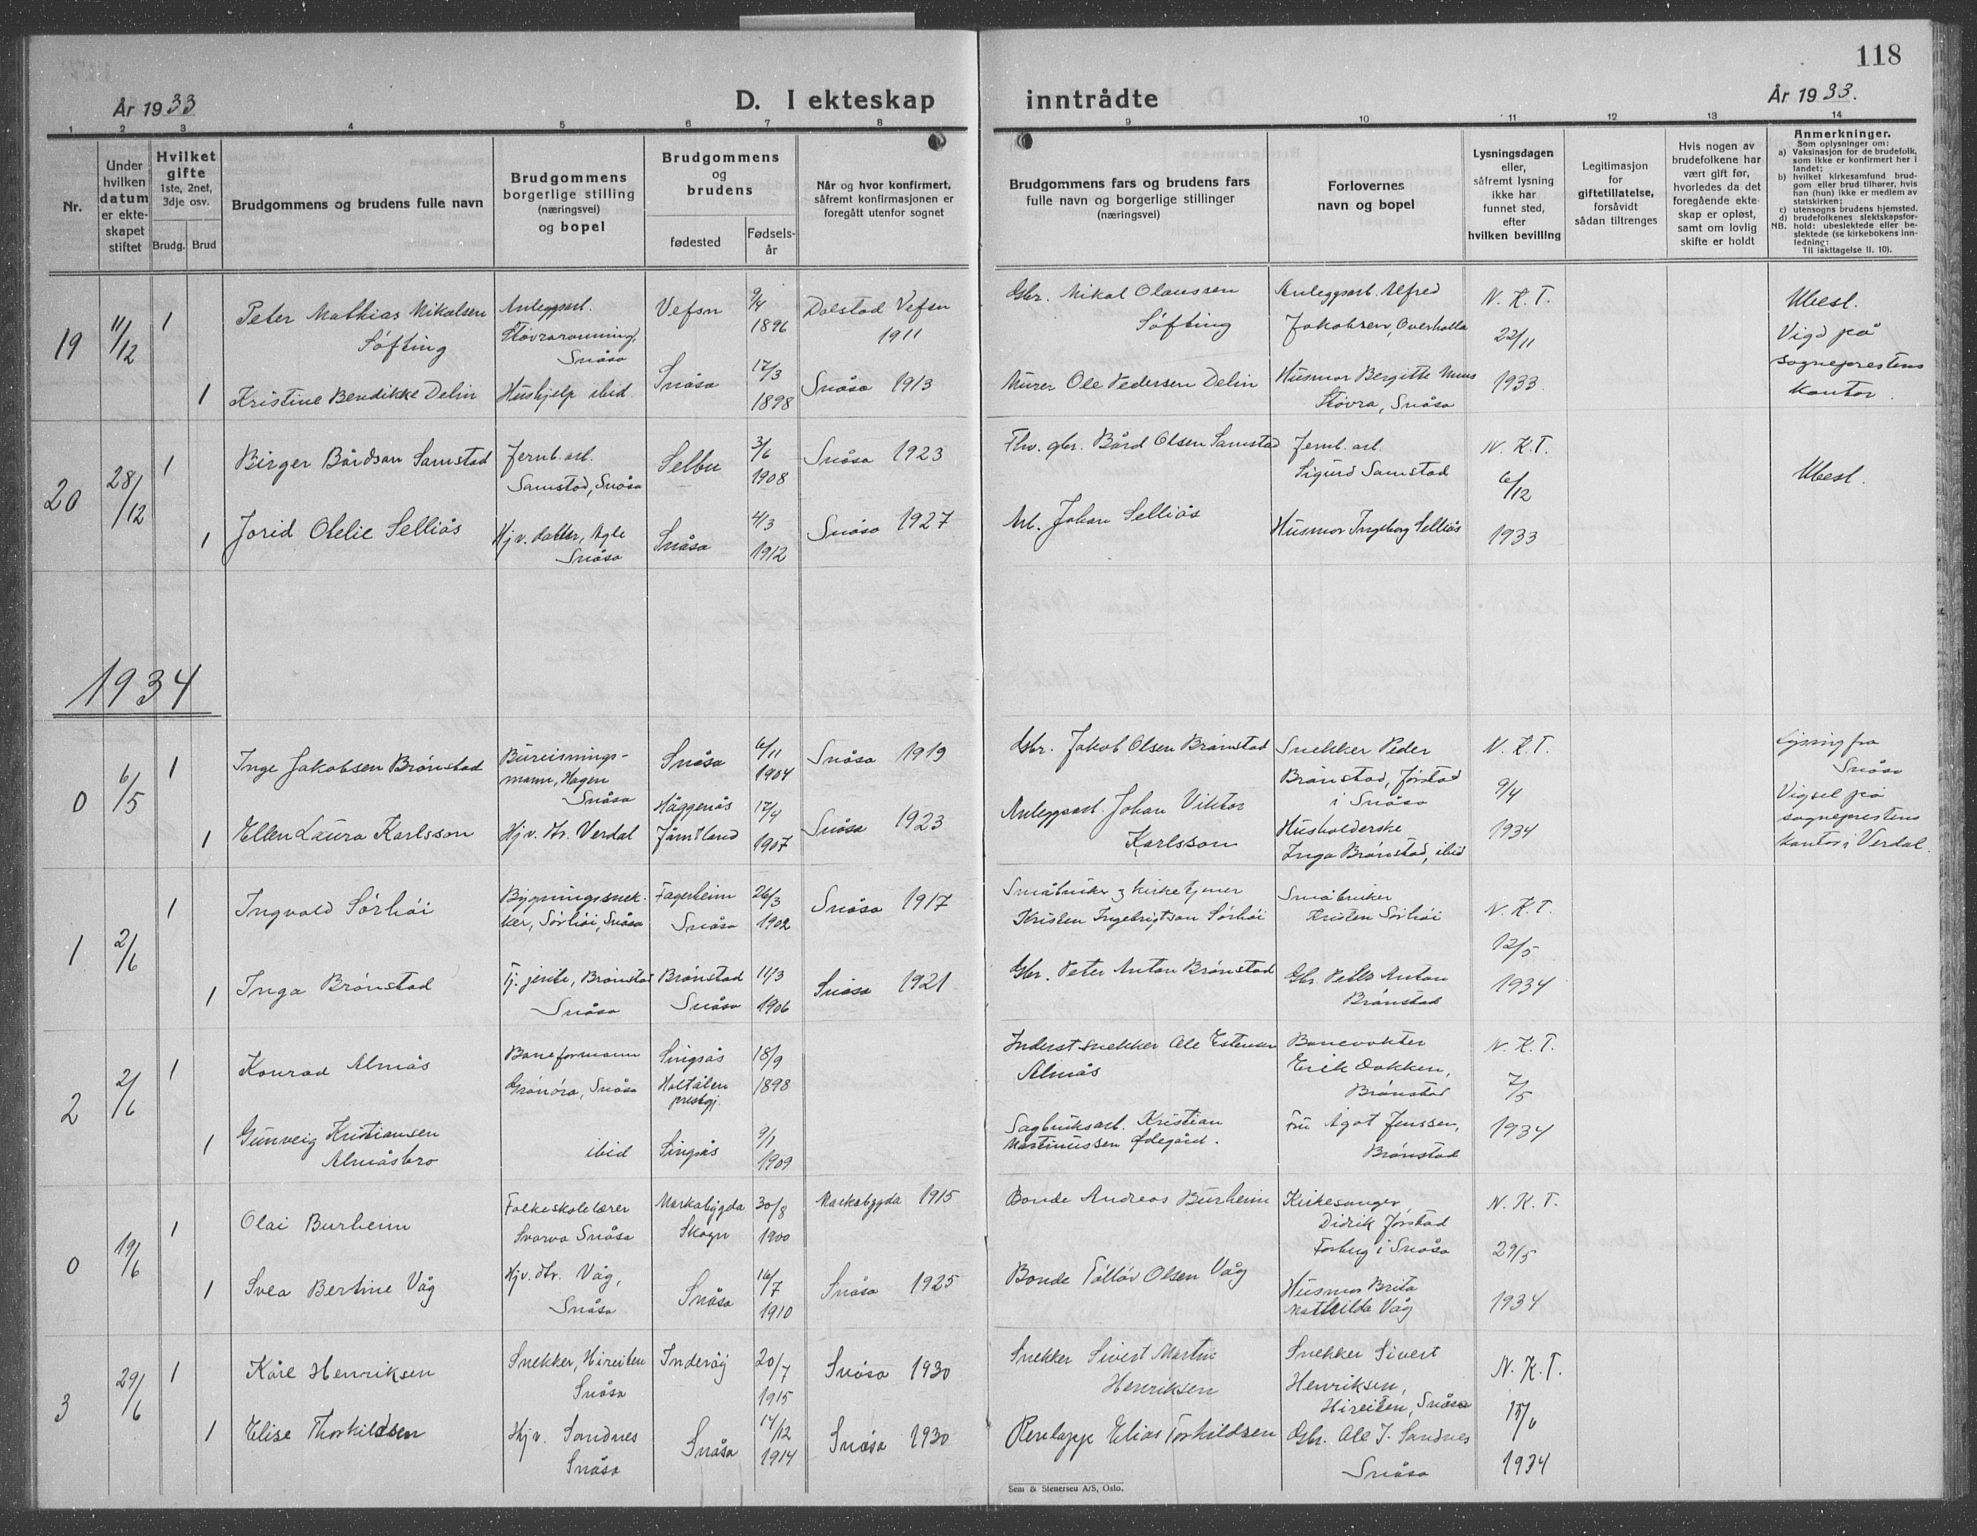 118
År 1933
D. I ekteskap
inntrådte
År 1933.
1 2 3 4 5 6 7 8 9 10 11 12 13 14
Nr.
Under hvilken datum er ekteskapet stiftet
Hvilket gifte
1ste, 2net, 3dje osv.
Brudg. Brud
Brudgommens og brudens fulle navn
Brudgommens borgerlige stilling (næringsvei) og bopel
Brudgommens og brudens
fødested
Fødselsår
Når og hvor konfirmert, såfremt konfirmasjonen er foregått utenfor sognet
Brudgommens fars og brudens fars fulle navn og borgerlige stillinger (næringsvei)
Forlovernes navn og bopel
Lysningsdagen eller, såfremt lysning ikke har funnet sted, efter hvilken bevilling
Legitimasjon for giftetillatelse, forsåvidt sådan tiltrenges
Hvis nogen av brudefolkene har vært gift før, hvorledes da det foregående ekteskap er opløst, samt om lovlig skifte er holdt
Anmerkninger.
Som oplysninger om:
a) Vaksinasjon for de brudefolk, som ikke er konfirmert her i landet;
b) hvilket kirkesamfund brudgom eller brud tilhører, hvis han (hun) ikke er medlem av statskirken;
c) utensogns brudens hjemsted.
d) brudefolkenes slektskapsforhold: ubeslektede eller beslektede (se kirkebokens innledning;
NB. Til iakttagelse II. 10).
19
11/12
1
Peter Mathias Mikalsen
Søfting
Anleggsarb.
Snåsa
Vefsn
9/4
1896
Dolstad Vefsn
1911
Gbr. Mikal Olaussen
Søfting
Anleggsarb. Alfred
Jakobsen, Overhalla
N. K. T.
22/11
1933
Ubesl.
Vigd på
sogneprestens
kontor.
1
Kristine Bendikke Delin
Hushjelp ibid.
Snåsa
17/3
1898
Snåsa 1913
Murer Ole Pedersen Delin
Husmor Bergitte
Støvra, Snåsa
20
28/12
1
Birger Bårdsen Samstad
Jernb. arb.
Samstad, Snåsa
Selbu
3/6
1908
Snåsa 1923
Fhv. gbr. Bård Olsen Samstad
Jernb. arb.
Sigurd Samstad
N. K. T.
6/12
1933
Ubesl.
1
Jorid Oletie Selliås
Hjv. datter, Agle
Snåsa
Snåsa
4/3
1912
Snåsa 1927
Arb. Johan Selliås
Husmor Ingeborg Selliås
1934
0
6/5
1
Inge Jakobsen Brønstad
Bureisnings-
mann, Hagen
Snåsa
Snåsa
6/11
1904
Snåsa 1919
Gbr. Jakob Olsen Brønstad
Snekker Peder
Brønstad, Jørstad
i Snåsa
N. K. T.
9/4
1934
Lysning fra
Snåsa
Vigsel på
sogneprestens
kontor i Verdal.
1
Ellen Laura Karlsson
Hjv. dtr. Verdal
Häggenås
Jämtland
17/4
1907
Snåsa 1923
Anleggsarb. Johan Viktor
Karlsson
Husholderske
Inga Brønstad, ibid
1
2/6
1
Ingvald Sørhøi
Bygningssnek-
ker, Sørhøi, Snåsa
Fagerheim
Snåsa
26/3
1902
Snåsa 1917
Småbruker & kirketjener
Kristen Ingebrigtsen Sørhøi
Småbruker
Kristen Sørhøi
N. K. T.
12/5
1934
1
Inga Brønstad
Tj. jente, Brønstad
Snåsa
Brønstad
Snåsa
11/3
1906
Snåsa 1921
Gbr. Peter Anton Brønstad
Gbr. Peter Anton
Brønstad
2
2/6
1
Konrad Almås
Baneformann
Grønøra, Snåsa
Singsås
Holtålen
prestgj.
18/9
1898
Inderst snekker Ole Estensen
Almås
Banevokter
Erik Dokken,
Brønstad
N. K. T.
7/5
1934
1
Gunveig Kristiansen
Almåsbro
ibid
Singsås
9/1
1909
Sagbruksarb. Kristian
Martinussen Ødegård.
Fru Agot Jenssen,
Brønstad
0
19/6
1
Olai Burheim
Folkeskolelærer
Svarva Snåsa
Markabygda
Skogn
30/8
1900
Markabygda 1915
Bonde Andreas Burheim
Kirkesanger
Didrik Jørstad
Forberg i Snåsa
N. K. T.
29/5
1934
1
Svea Bertine Våg
Hjv. dtr. Våg,
Snåsa
Snåsa
16/7
1910
Snåsa 1925
Bonde Tølløv Olsen Våg
Husmor Brita
Mathilda Våg
3
29/6
1
Kåre Henriksen
Snekker, Hireiten
Snåsa
Inderøy
20/7
1915
Snåsa 1930
Snekker Sivert Martin
Henriksen
Snekker Sivert
Henriksen,
Hireiten, Snåsa
N. K. T.
15/6
1934
1
Elise Thorkildsen
Hjv. Sandnes
Snåsa
Snåsa
14/12
1914
Snåsa 1930
Renlapp Elias Torkildsen
Gbr. Ole J. Sandnes
Snåsa
Sem & Stenersen A/S, Oslo.